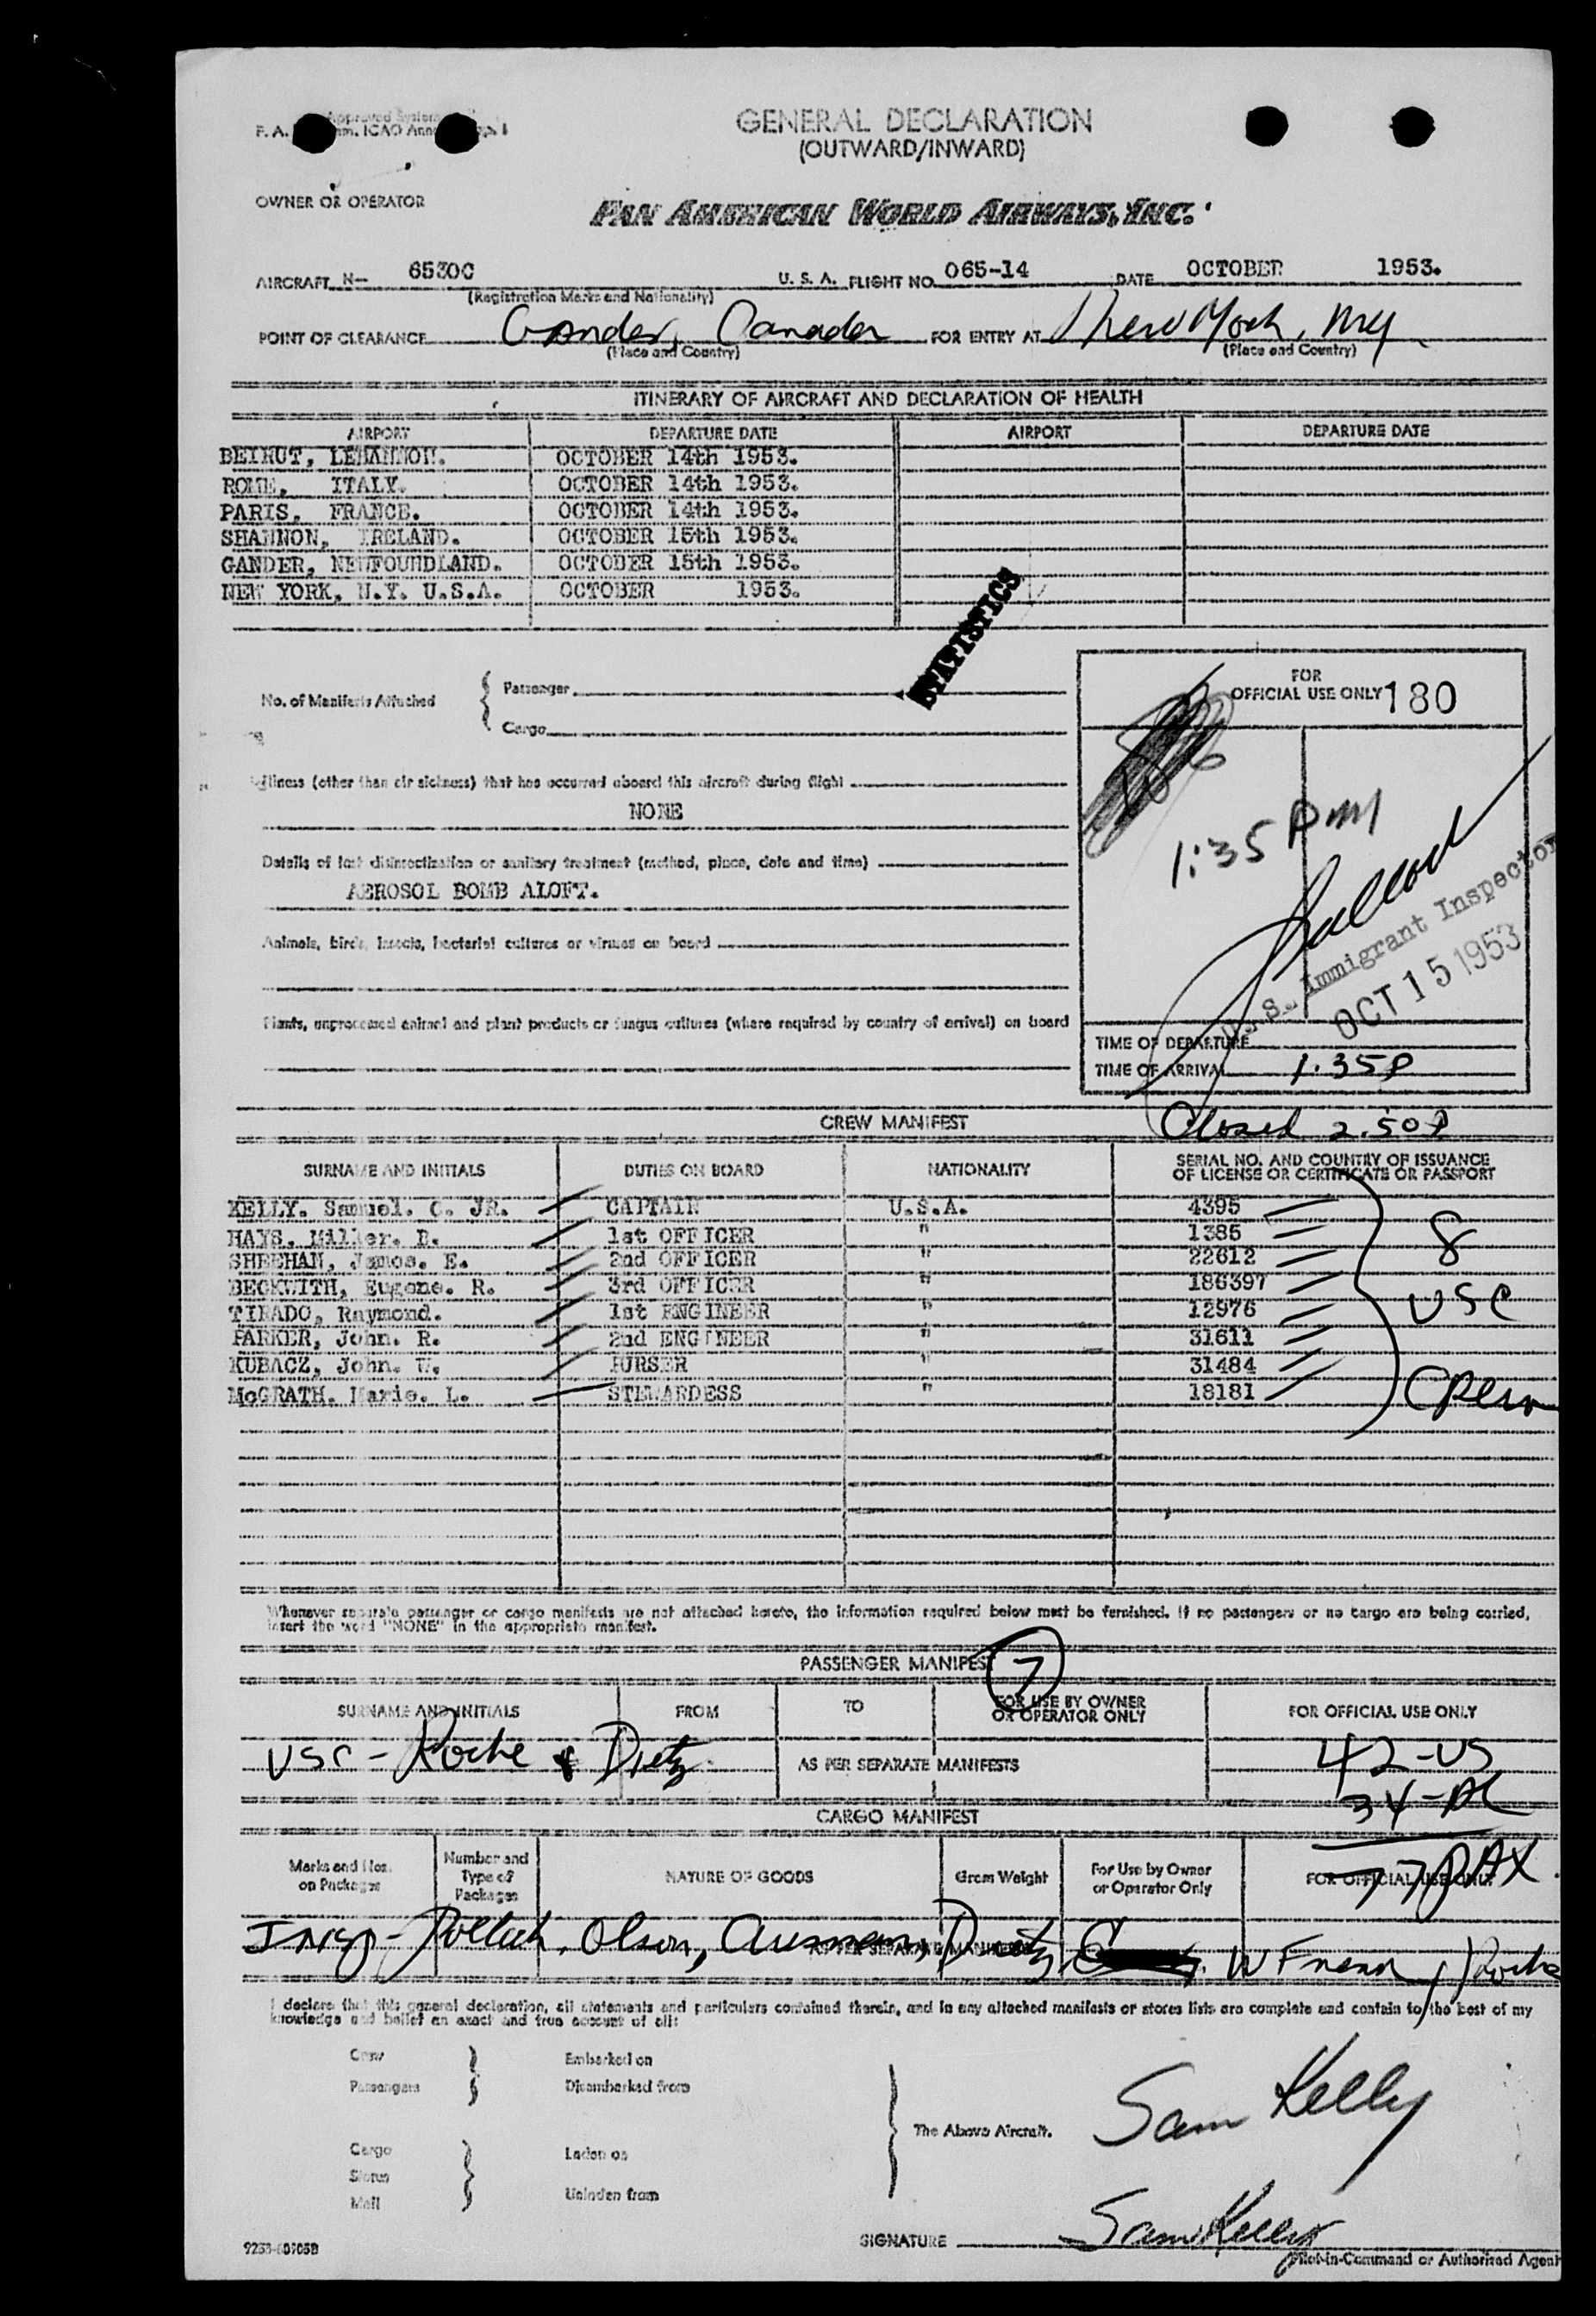 GENERAL DECLARATION
(OUTWARD/INWARD)
OWNER OR OPERATOR
PAN AMERICAN WORLD AIRWAYS, INC.
AIRCRAFT N- 6530C U. S. A. FLIGHT NO. 065-14 DATE OCTOBER 1953.
(Registration Marks and Nationality)
POINT OF CLEARANCE Gander, Canada FOR ENTRY AT New York, NY
(Place and Country) (Place and Country)
ITINERARY OF AIRCRAFT AND DECLARATION OF HEALTH
AIRPORT DEPARTURE DATE AIRPORT DEPARTURE DATE
BEIRUT, LEBANNON. OCTOBER 14th 1953.
ROME, ITALY. OCTOBER 14th 1953.
PARIS, FRANCE. OCTOBER 14th 1953.
SHANNON, IRELAND. OCTOBER 15th 1953.
GANDER, NEWFOUNDLAND. OCTOBER 15th 1953.
NEW YORK, N.Y. U.S.A. OCTOBER 1953.
STATISTICS
No. of Manifests Attached
Passenger
Cargo
FOR
OFFICIAL USE ONLY 180
Illness (other than air sickness) that has occurred aboard this aircraft during flight
NONE
Details of last disinsectization or sanitary treatment (method, place, date and time)
AEROSOL BOMB ALOFT.
Animals, birds, insects, bacterial cultures or viruses on board
Plants, unprocessed animal and plant products or fungus cultures (where required by country of arrival) on board
1:35 PM
U. S. Immigrant Inspector
OCT 15 1953
TIME OF DEPARTURE
TIME OF ARRIVAL 1.35P
Closed 2.50P
CREW MANIFEST
SURNAME AND INITIALS DUTIES ON BOARD NATIONALITY SERIAL NO. AND COUNTRY OF ISSUANCE
OF LICENSE OR CERTIFICATE OR PASSPORT
KELLY. Samuel. C. JR. CAPTAIN U.S.A. 4395
HAYS. Miller. B. 1st OFFICER " 1385
SHEEHAN, James. E. 2nd OFFICER " 22612
BECKWITH, Eugene. R. 3rd OFFICER " 186397
TIRADO, Raymond. 1st ENGINEER " 12976
PARKER, John. R. 2nd ENGINEER " 31611
KUBACZ, John. W. PURSER " 31484
McGRATH. Marie. L. STEWARDESS " 18181
8
USC
Whenever separate passenger or cargo manifests are not attached hereto, the information required below must be furnished. If no passengers or no cargo are being carried,
insert the word "NONE" in the appropriate manifest.
PASSENGER MANIFEST 7
SURNAME AND INITIALS FROM TO FOR USE BY OWNER
OR OPERATOR ONLY FOR OFFICIAL USE ONLY
USC - Roche & Dietz AS PER SEPARATE MANIFESTS 42-US
CARGO MANIFEST
Marks and Nos.
on Packages Number and
Type of
Packages NATURE OF GOODS Gross Weight For Use by Owner
or Operator Only FOR OFFICIAL USE ONLY
77 PAX
Olson, Dietz, Roche
AS PER SEPARATE MANIFESTS
I declare that this general declaration, all statements and particulars contained therein, and in any attached manifests or stores lists are complete and contain to the best of my
knowledge and belief an exact and true account of all:
Crew Embarked on
Passengers Disembarked from
The Above Aircraft. Sam Kelly
Cargo Laden on
Stores
Mail Unladen from
SIGNATURE Sam Kelly
Pilot-in-Command or Authorized Agent